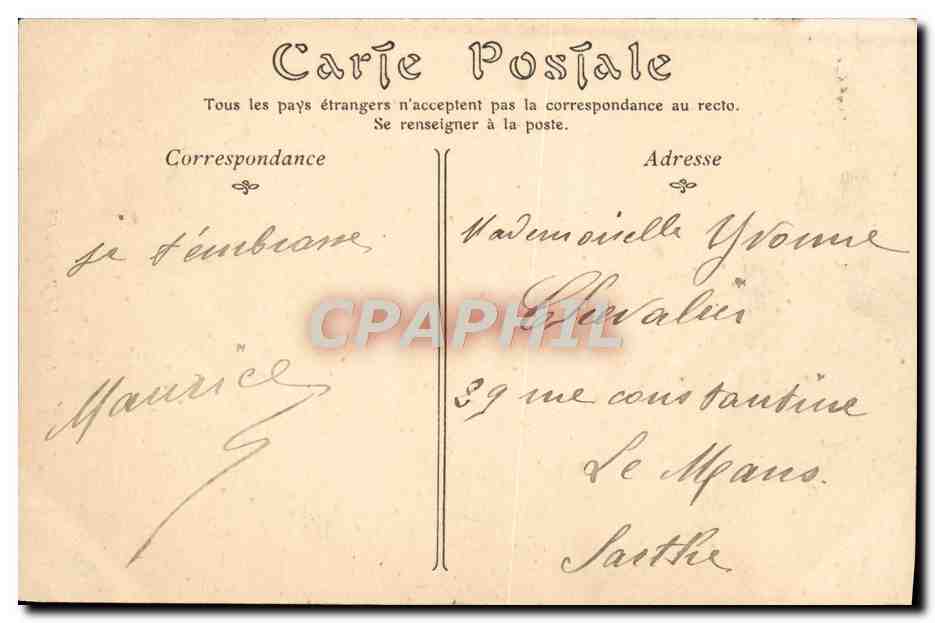 Carte Postale
Tous les pays étrangers n'acceptent pas la correspondance au recto.
Se renseigner à la poste.
Correspondance
Adresse
je t'embrasse
Maurice
Mademoiselle Yvonne
Chevalier
29 rue constantine
Le Mans.
Sarthe
CPAPHIL